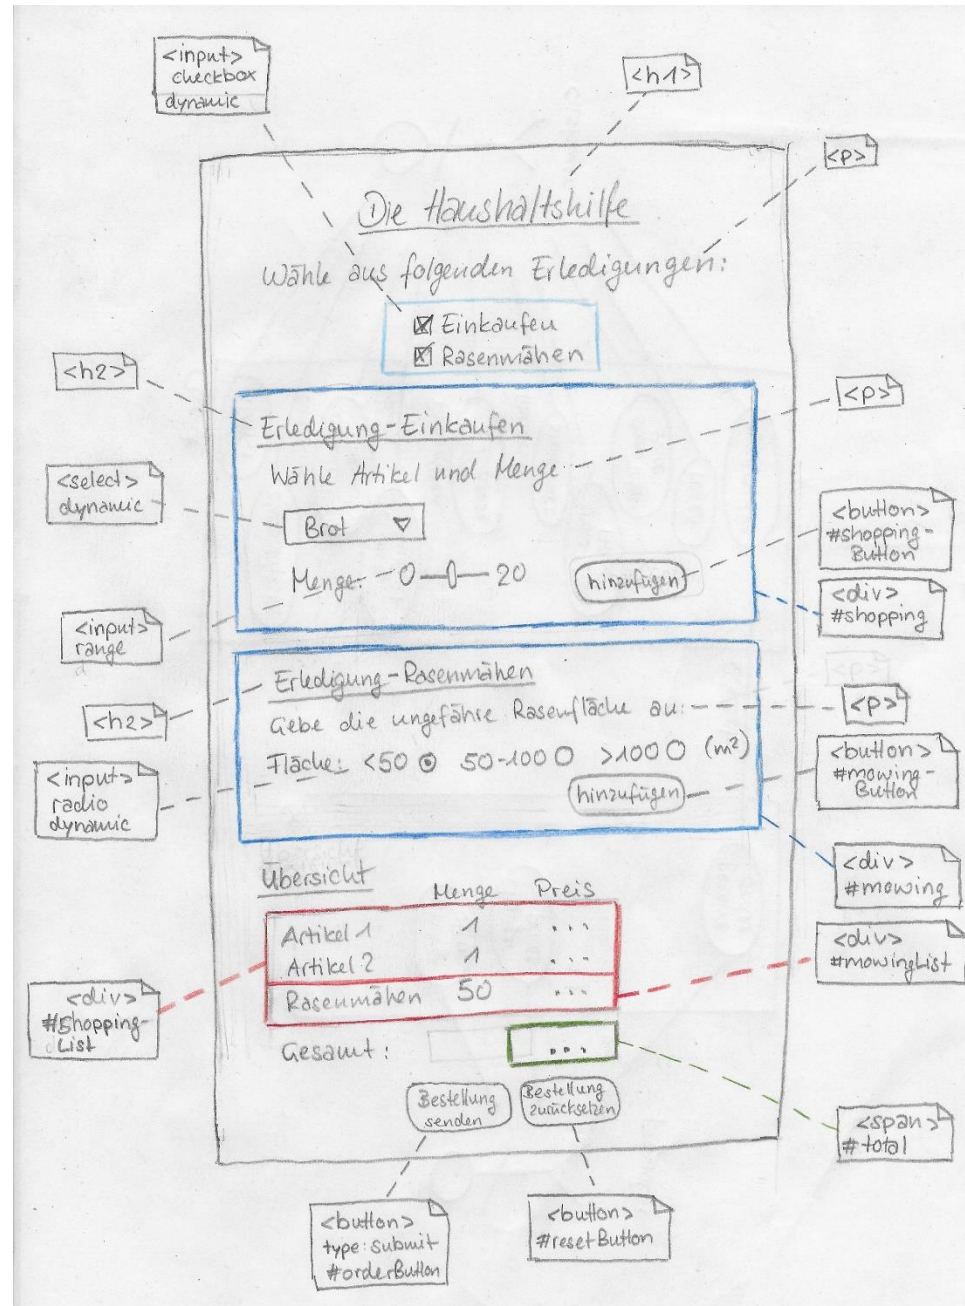 <input>
checkbox
dynamic
<h1>
<p>
Die Haushaltshilfe
Wähle aus folgenden Erledigungen:
Einkaufen
Rasenmähen
<h2>
<p>
Erledigung-Einkaufen
Wähle Artikel und Menge
<select>
dynamic
Brot
<button>
#shopping-
Button
Menge: 0 20
hinzufügen
<div>
#shopping
<input>
range
Erledigung-Rasenmähen
<h2>
<p>
Gebe die ungefähre Rasenfläche an:
Fläche: <50 50-100 >100 (m²)
<button>
#mowing-
Button
<input>
radio
dynamic
hinzufügen
<div>
#mowing
Übersicht
Menge Preis
Artikel 1 1 ...
Artikel 2 1 ...
Rasenmähen 50 ...
<div>
#mowingList
<div>
#Shopping-
List
Gesamt: ...
Bestellung
senden
Bestellung
zurücksetzen
<span>
#total
<button>
type: submit
#orderButton
<button>
#resetButton